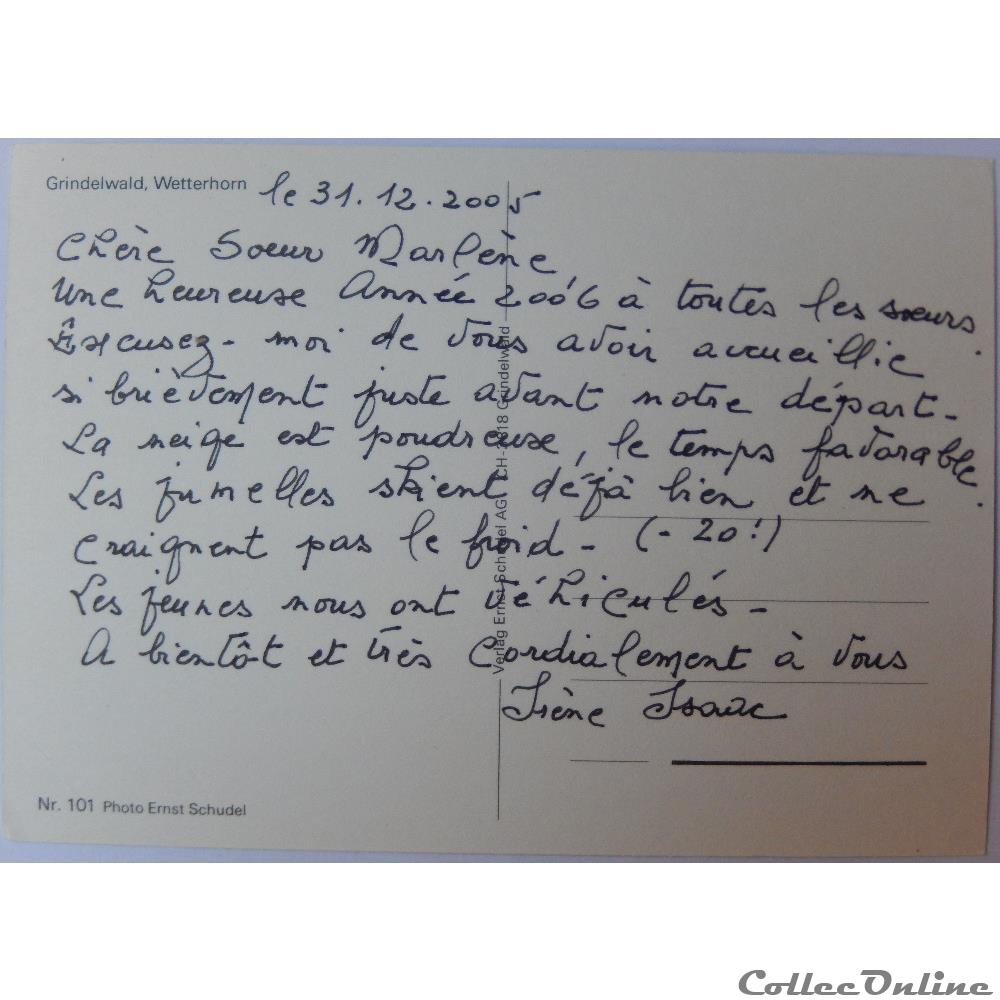 Grindelwald, Wetterhorn
le 31.12.2005
Chère Soeur Marlène
Une heureuse Année 2006 à toutes les sœurs.
Excusez-moi de vous avoir accueillie
si brièvement juste avant notre départ-
La neige est poudreuse, le temps favorable.
Les jumelles skient déjà bien et ne
craignent pas le froid- (-20!)
Les jeunes nous ont véhiculés-
A bientôt et très cordialement à vous
Irène Isaac
Verlag Ernst Schudel AG, CH-3818 Grindelwald
Nr. 101 Photo Ernst Schudel
CollecOnline